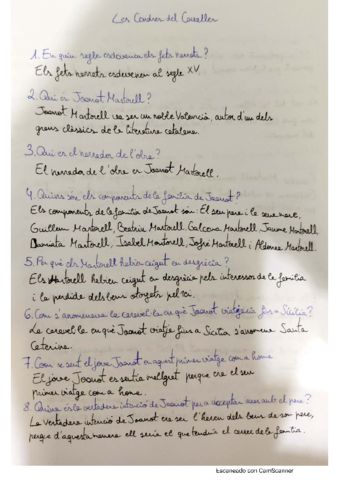 Les Cendres del Cavaller
1. En quin segle esdevenen els fets narrats?
Els fets narrats esdevenen al segle XV.
2. Qui és Joanot Martorell?
Joanot Martorell va ser un noble Valencià, autor d'un dels
grans clàssics de la literatura catalana.
3. Qui és el narrador de l'obra?
El narrador de l'obra és Joanot Martorell.
4. Quins són els components de la família de Joanot?
Els components de la família de Joanot són: El seu pare i la seva mare,
Guillem Martorell, Beatriu Martorell, Galceran Martorell, Jaume Martorell
Damiata Martorell, Isabel Martorell, Jofré Martorell i Aldonça Martorell.
5. Per què els Martorell havien caigut en desgràcia?
Els Martorell havien caigut en desgràcia pels interessos de la família
i la perdida dels bens otorgats pel rei.
6. Com s'anomenava la caravel·la en què Joanot viatjaria fins a Sicília?
La caravel·la en què Joanot viatja fins a Sicília s'anomena Santa
Caterina.
7. Com se sent el jove Joanot en aquest primer viatge com a home
El jove Joanot es sentia malgrat perque era el seu
primer viatge com a home.
8. Quina és la vertadera intenció de Joanot per a acceptar anar amb el pare?
La vertadera intenció de Joanot era ser l'hereu dels bens de son pare,
perque d'aquesta manera ell seria el que tendria el càrrec de la família.
Escaneado con CamScanner